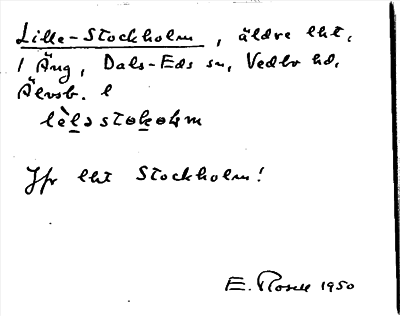 Lille-Stockholm, äldre lht.
i Äng, Dals-Eds sn, Vedbo hd,
Älvsb. l
lèlə støkøm
Jfr lht Stockholm!
E. Rosell 1950